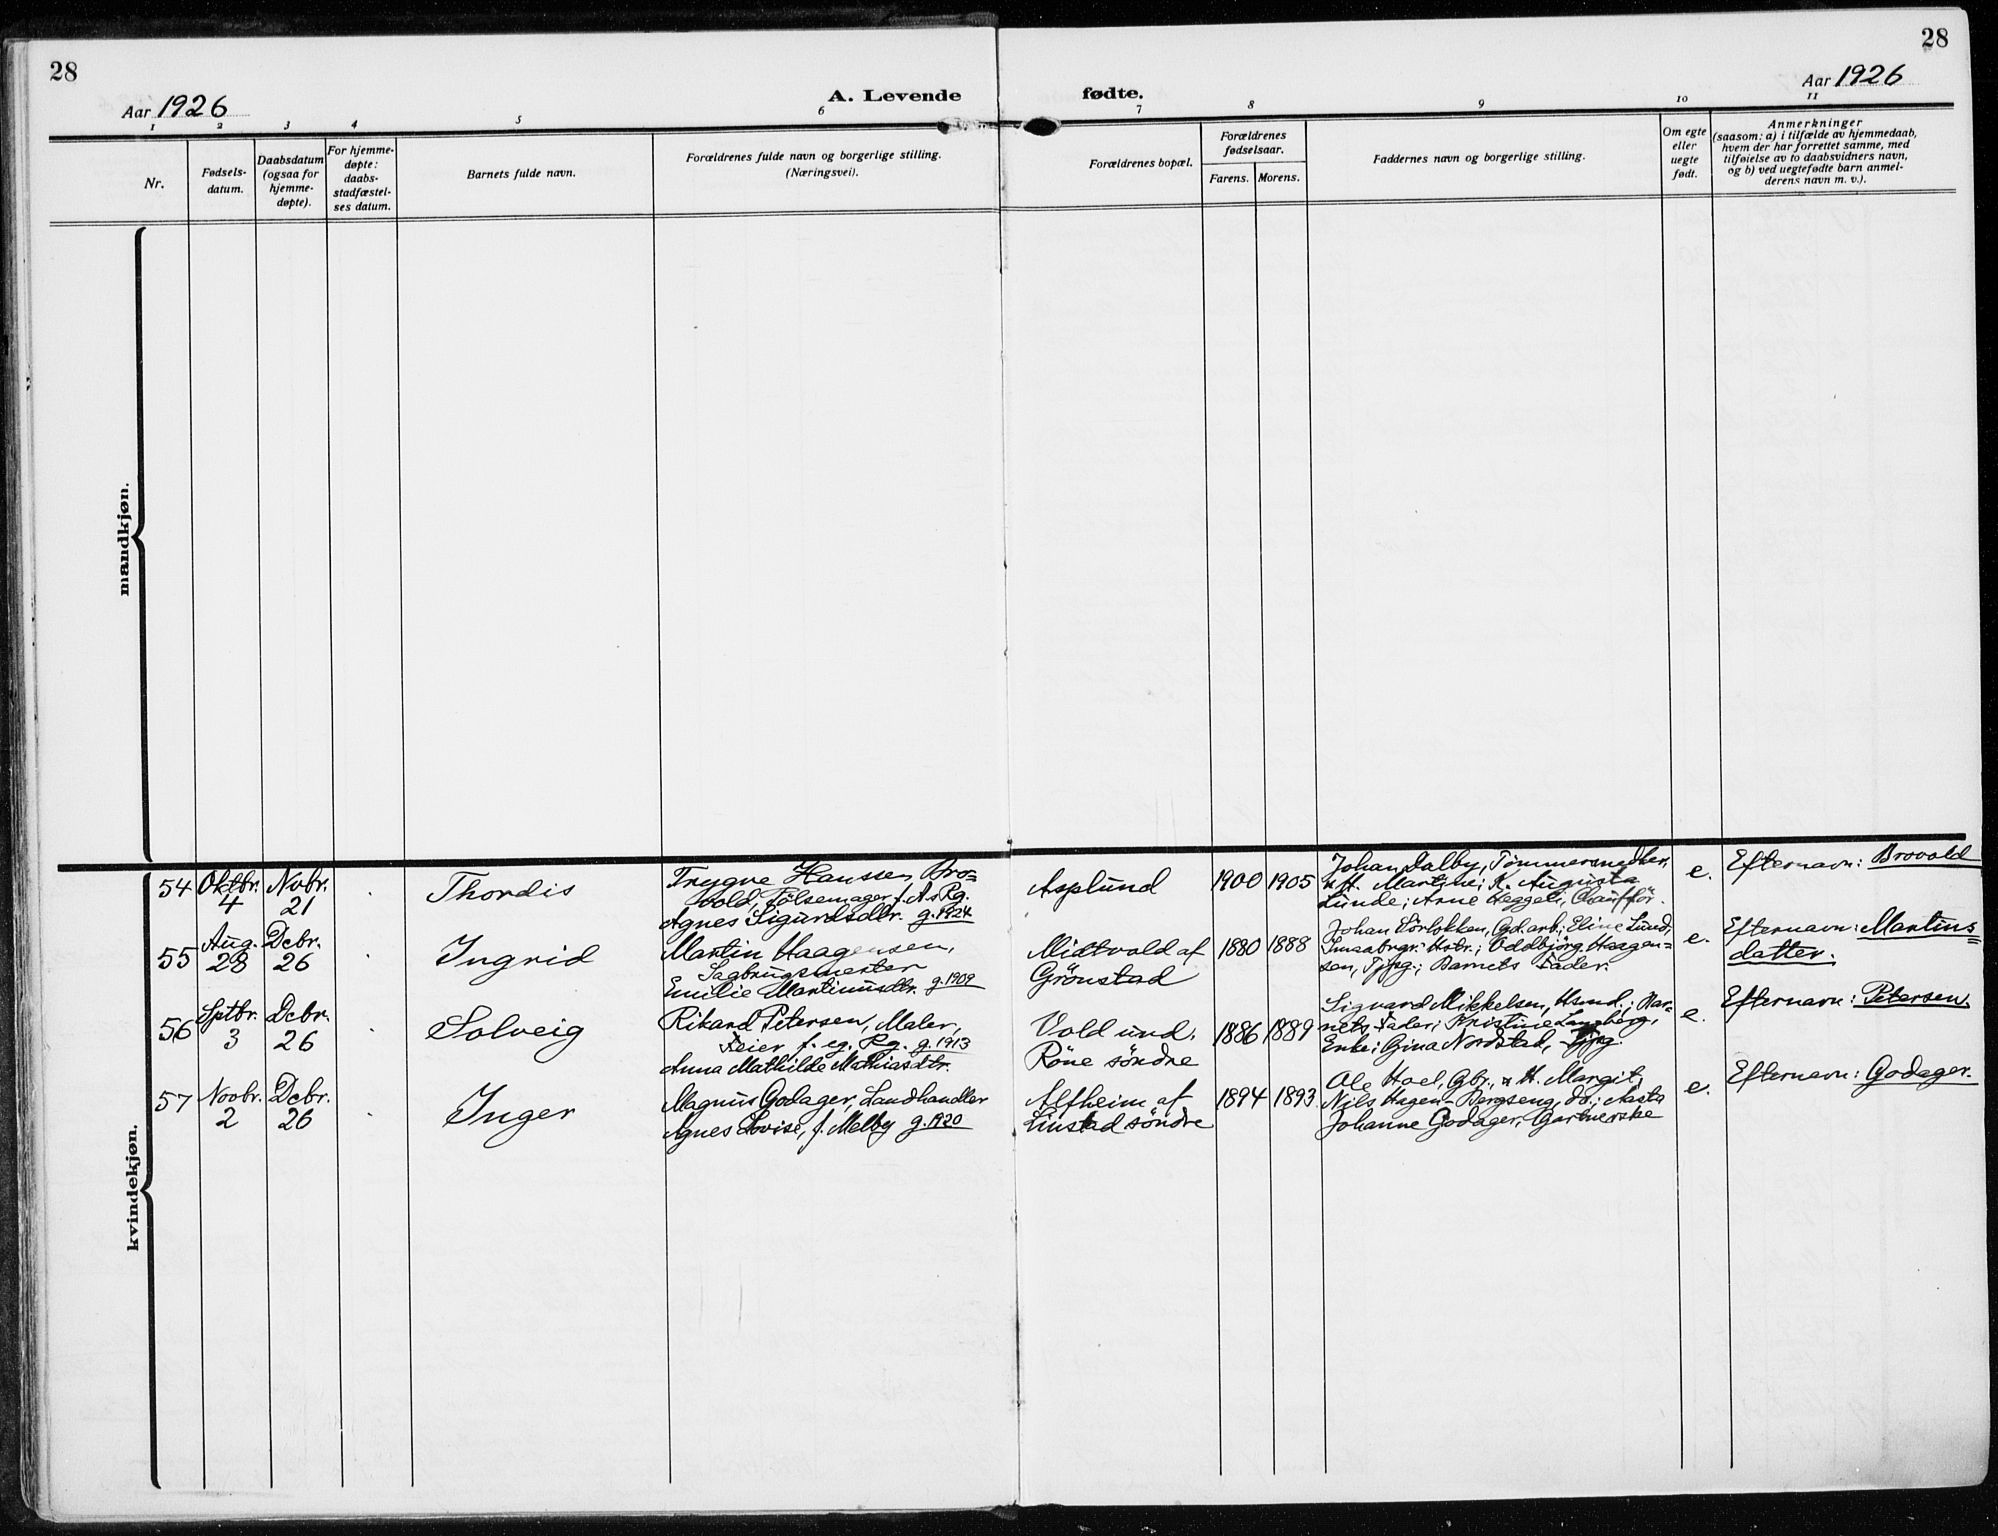 28
28
Aar 1926
A. Levende fødte.
Aar 1926
1 2 3 4 5 6 7 8 9 10 11
Nr.
Fødsels-
datum.
Daabsdatum
(ogsaa for
hjemme-
døpte).
For hjemme-
døpte:
daabs-
stadfæstel-
ses datum.
Barnets fulde navn.
Forældrenes fulde navn og borgerlige stilling.
(Næringsvei).
Forældrenes bopæl.
Forældrenes
fødselsaar.
Farens. Morens.
Faddernes navn og borgerlige stilling.
Om egte
eller
uegte
født.
Anmerkninger
(saasom: a) i tilfælde av hjemmedaab,
hvem der har forrettet samme, med
tilføielse av to daabsvidners navn,
og b) ved uegtefødte barn anmel-
derens navn m. v.).
mandkjøn.
kvindekjøn.
54 Oktbr. 4 Novbr. 21
Thordis
Trygve Hanssen Bro=
vold, Pölsemager f. A s Pg.
Agnes Sigurdsdtr. g. 1924
Asplund
1900 1905
Johan Dalby, Tömmersmed
Martine; K. Augusta
Lunde; Arne Heggeli, Chaufför.
e.
Efternavn: Brovold
55 Aug. 28 Dcbr. 26
Ingrid
Martin Haagensen,
Sagbrugsmester
Emilie Martinusdtr. g. 1909
Midtvold af
Grönstad
1880 1888
Johan Sörlokken, Gd.arb.; Eline Lund,
Hstr.; Oddbjörg Haagen=
sen, Tjpg.; Barnets Fader.
e.
Efternavn: Martinus=
datter.
56 Sptbr. 3 Dcbr. 26
Solveig
Rikard Petersen, Maler,
Feier f. eg. Rg. g. 1913
Anna Mathilde Mathiasdtr.
Vold und.
Röne söndre
1886 1889
Sigvard Mikkelsen, Hsmd.; Bar=
nets Fader; Kristine Langberg,
Enke; Gina Nordstad, Tjpg.
e.
Efternavn: Petersen.
57 Novbr. 2 Dcbr. 26
Inger
Magnus Godager, Landhandler
Agnes Lovise, f. Melby g. 1920
Alfheim af
Linstad söndre
1894 1893
Ole Hoel, Gbr., & H. Margit;
Nils Hagen-Bergseng, do.; Aasta
Johanne Godager, Gartnerske
e.
Efternavn: Godager.